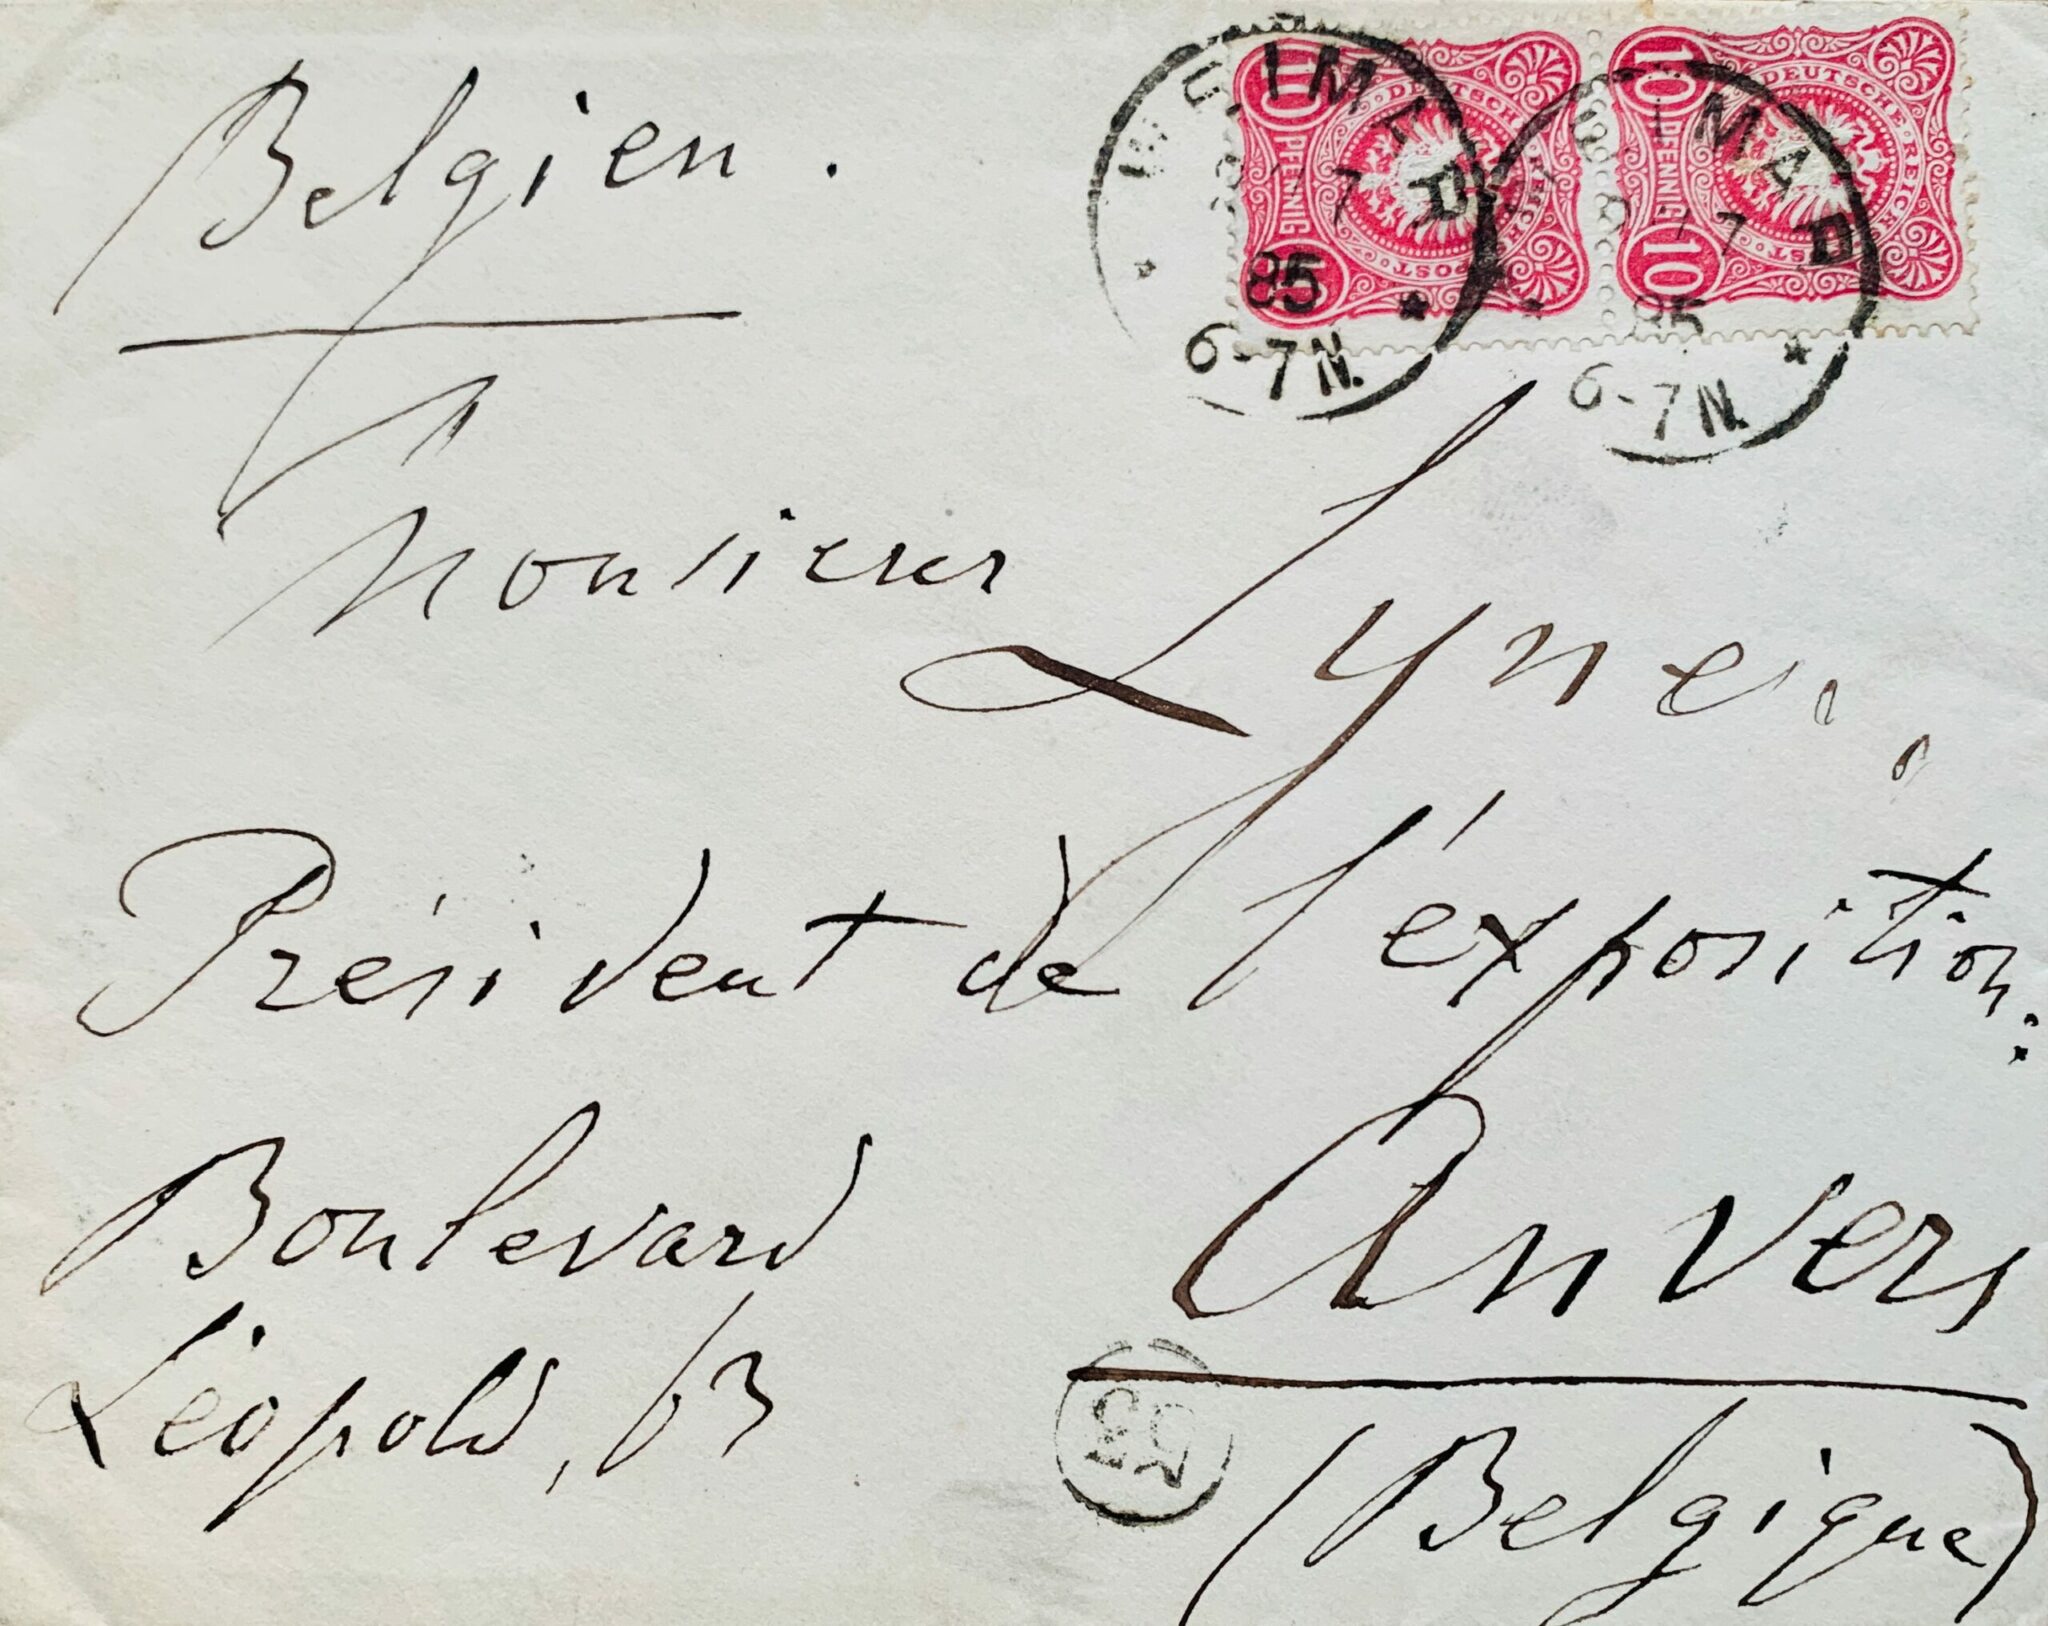 Belgien.
WEIMAR
85
6-7N.
10 PFENNIG 10
DEUTSCHE REICHS-POST
WEIMAR
85
6-7N.
10 PFENNIG 10
DEUTSCHE REICHS-POST
Monsieur Lynen,
Président de l'éxposition:
Boulevard
Léopold, 63
Anvers
(Belgique)